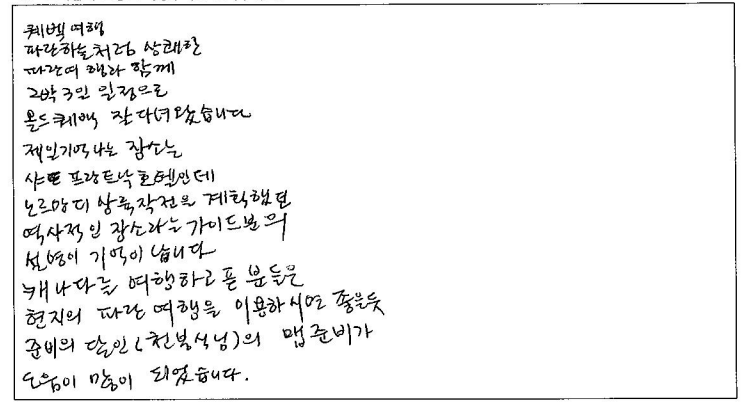 퀘벡여행
파란하늘처럼 상쾌한
파란여행과 함께
2박3일 일정으로
올드퀘백 잘다녀왔습니다
제일기억나는 장소는
샤또 프랑트낙호텔인데
노르망디 상륙작전을 계획했던
역사적인 장소라는 가이드분의
설명이 기억이 납니다
캐나다를 여행하고픈 분들은
현지의 파란여행을 이용하시면 좋을듯
준비의 달인(천봉식님)의 맵준비가
도움이 많이 되었습니다.